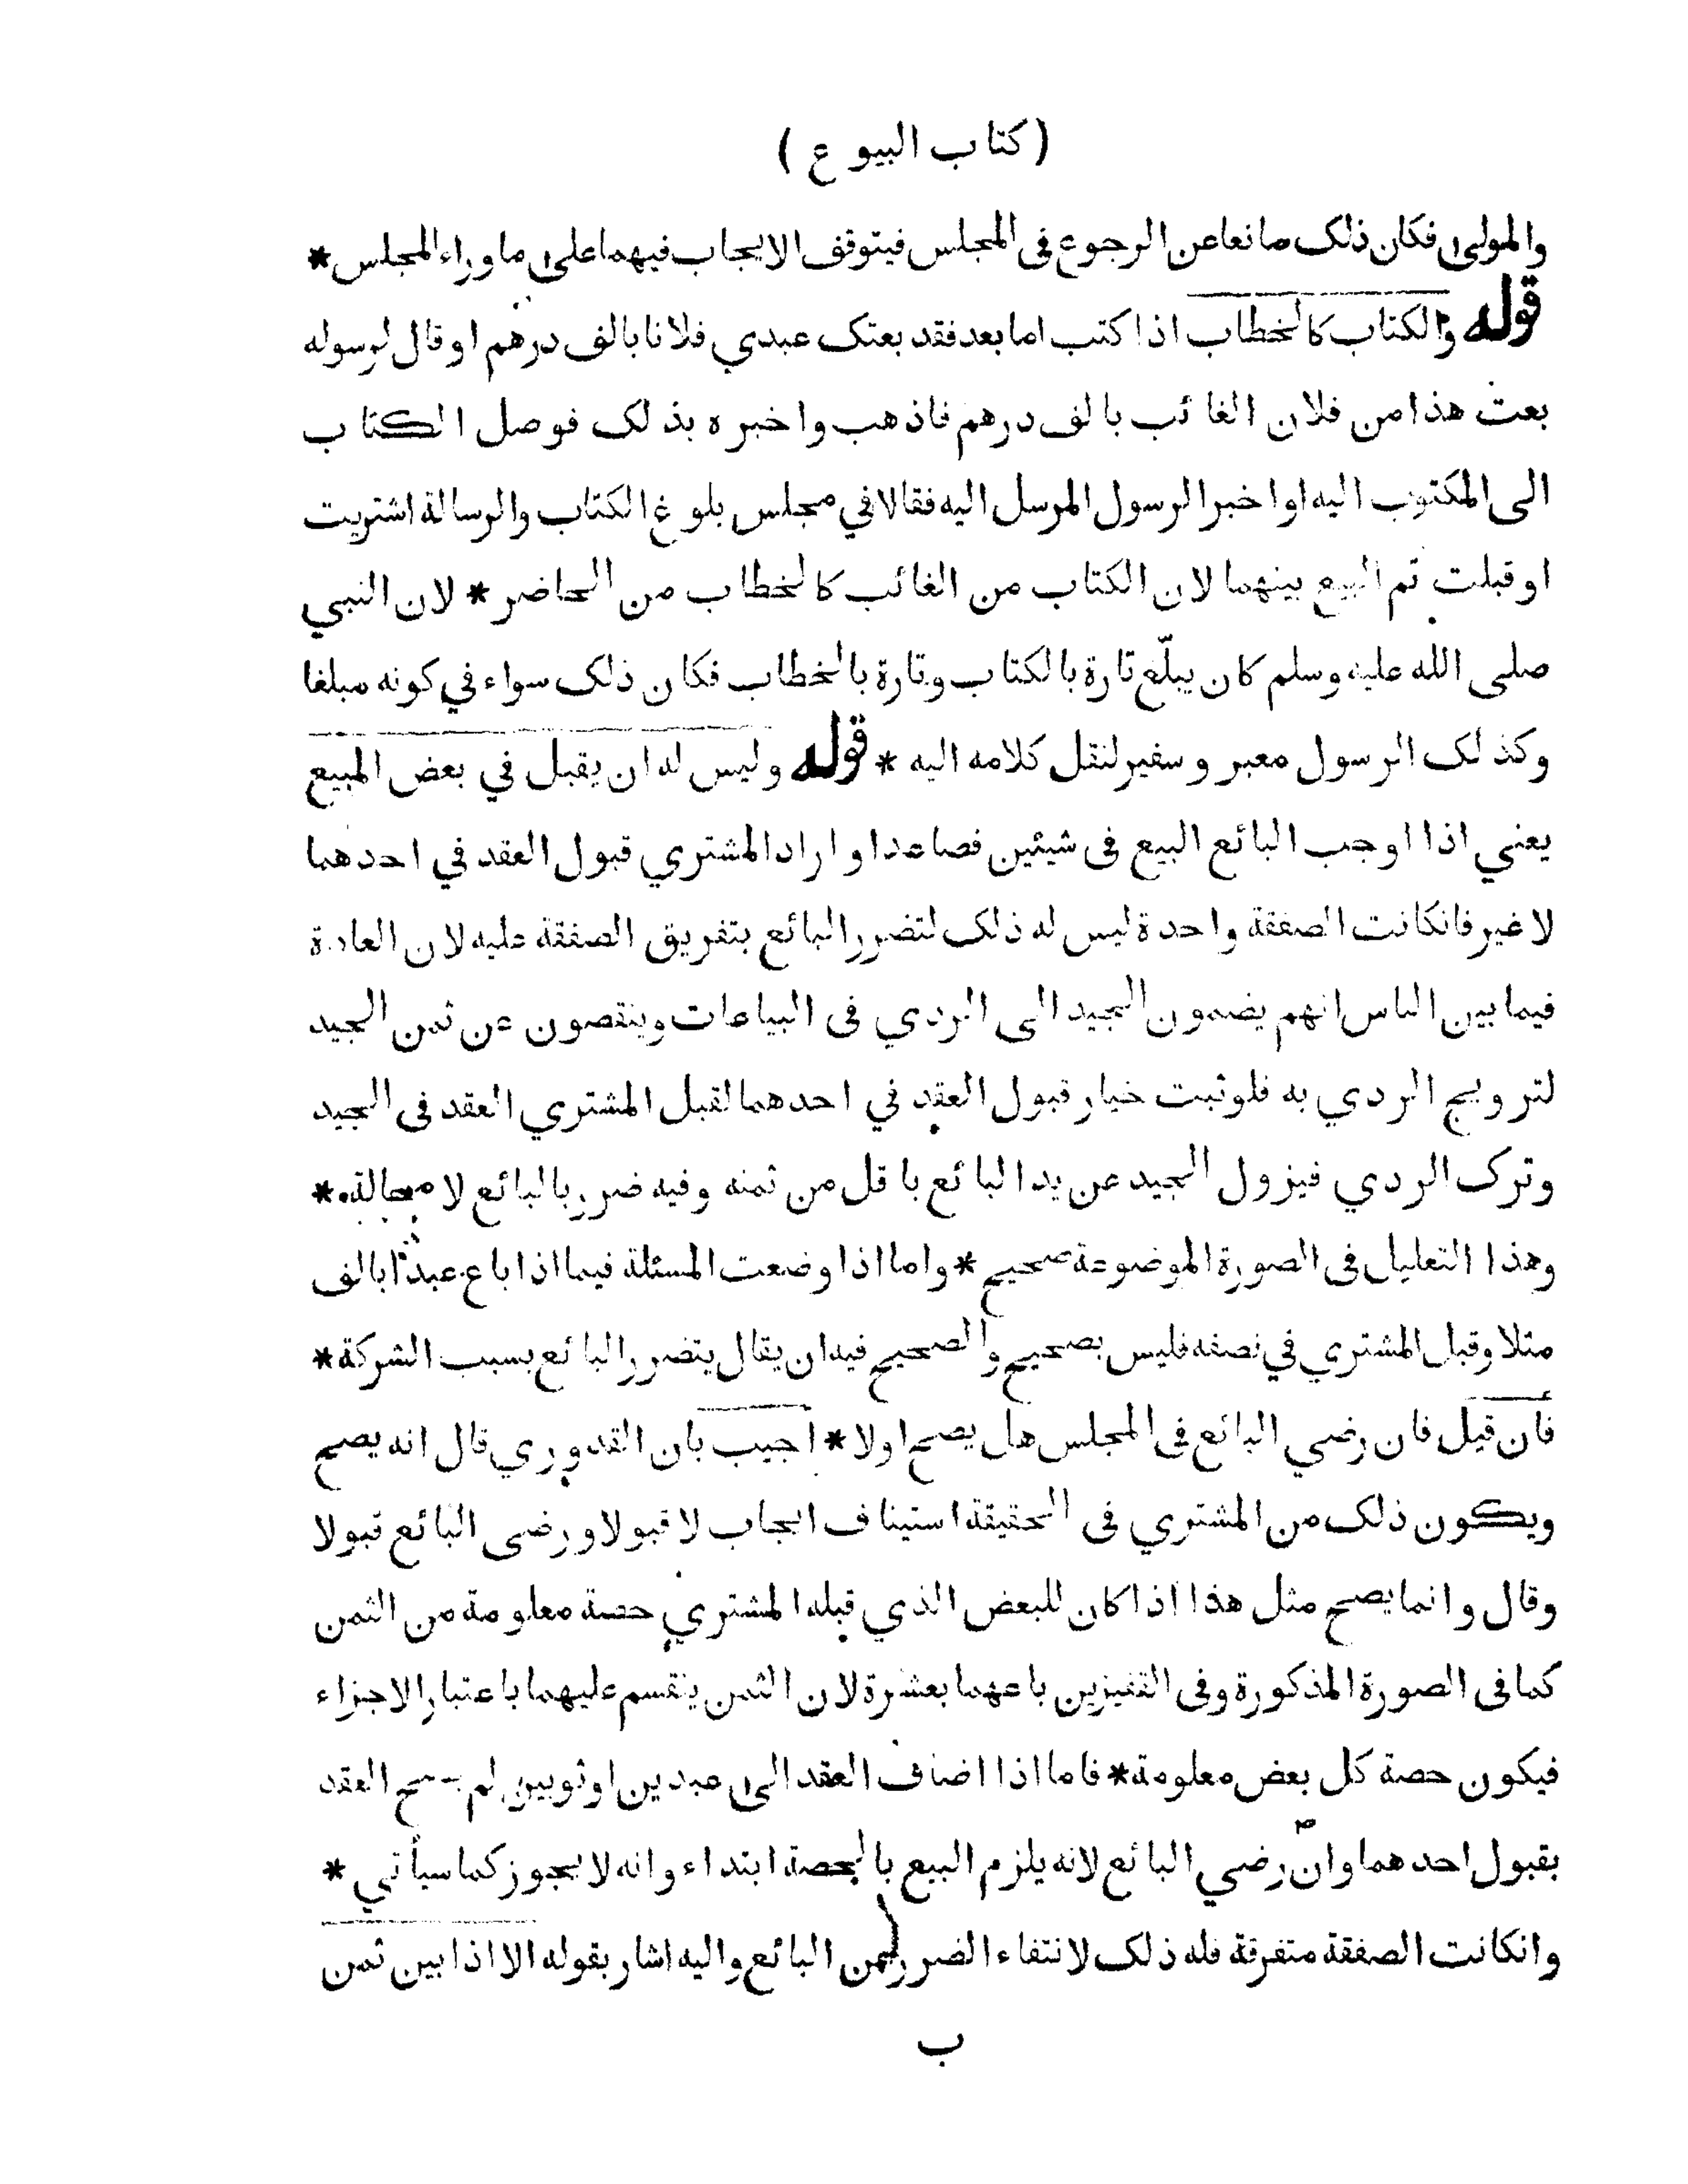 ( كتاب البيوع )
والمولى فكان ذلك مانعا عن الرجوع فى المجلس فيتوقف الايجاب فيهما على ما وراء المجلس *
قوله والكتاب كالخطاب اذا كتب اما بعد فقد بعتك عبدي فلانا بالف درهم او قال لرسوله
بعت هذا من فلان الغائب بالف درهم فاذهب واخبره بذلك فوصل الكتاب
الى المكتوب اليه او اخبر الرسول المرسل اليه فقالا في مجلس بلوغ الكتاب والرسالة اشتريت
او قبلت تم البيع بينهما لان الكتاب من الغائب كالخطاب من الحاضر * لان النبي
صلى الله عليه وسلم كان يبلّغ تارة بالكتاب وتارة بالخطاب فكان ذلك سواء في كونه مبلغا
وكذلك الرسول معبر و سفير لنقل كلامه اليه * قوله وليس له ان يقبل في بعض المبيع
يعني اذا اوجب البائع البيع فى شيئين فصاعدا و اراد المشتري قبول العقد في احدهما
لا غير فانكانت الصفقة واحدة ليس له ذلك لتضرر البائع بتفريق الصفقة عليه لان العادة
فيما بين الناس انهم يضمون الجيد الى الردي فى البياعات وينقصون عن ثمن الجيد
لترويج الردي به فلو ثبت خيار قبول العقد في احدهما لقبل المشتري العقد فى الجيد
وترك الردي فيزول الجيد عن يد البائع باقل من ثمنه وفيه ضرر بالبائع لا محالة *
وهذا التعليل فى الصورة الموضوعة صحيح * واما اذا وضعت المسئلة فيما اذا باع عبدا بالف
مثلا وقبل المشتري في نصفه فليس بصحيح والصحيح فيه ان يقال يتضرر البائع بسبب الشركة *
فأن قيل فان رضي البائع فى المجلس هل يصح اولا * اجيب بان القدوري قال انه يصح
ويكون ذلك من المشتري فى الحقيقة استيناف ايجاب لا قبولا و رضى البائع قبولا
وقال وانما يصح مثل هذا اذا كان للبعض الذي قبله المشتري حصة معلومة من الثمن
كما فى الصورة المذكورة وفى القفيزين باعهما بعشرة لان الثمن ينقسم عليهما باعتبار الاجزاء
فيكون حصة كل بعض معلومة * فاما اذا اضاف العقد الى عبدين او ثوبين لم يصح العقد
بقبول احدهما وان رضي البائع لانه يلزم البيع بالحصة ابتداء وانه لا يجوز كما سيأتي *
وانكانت الصفقة متفرقة فله ذلك لانتفاء الضرر من البائع واليه اشار بقوله الا اذا بين ثمن
ب